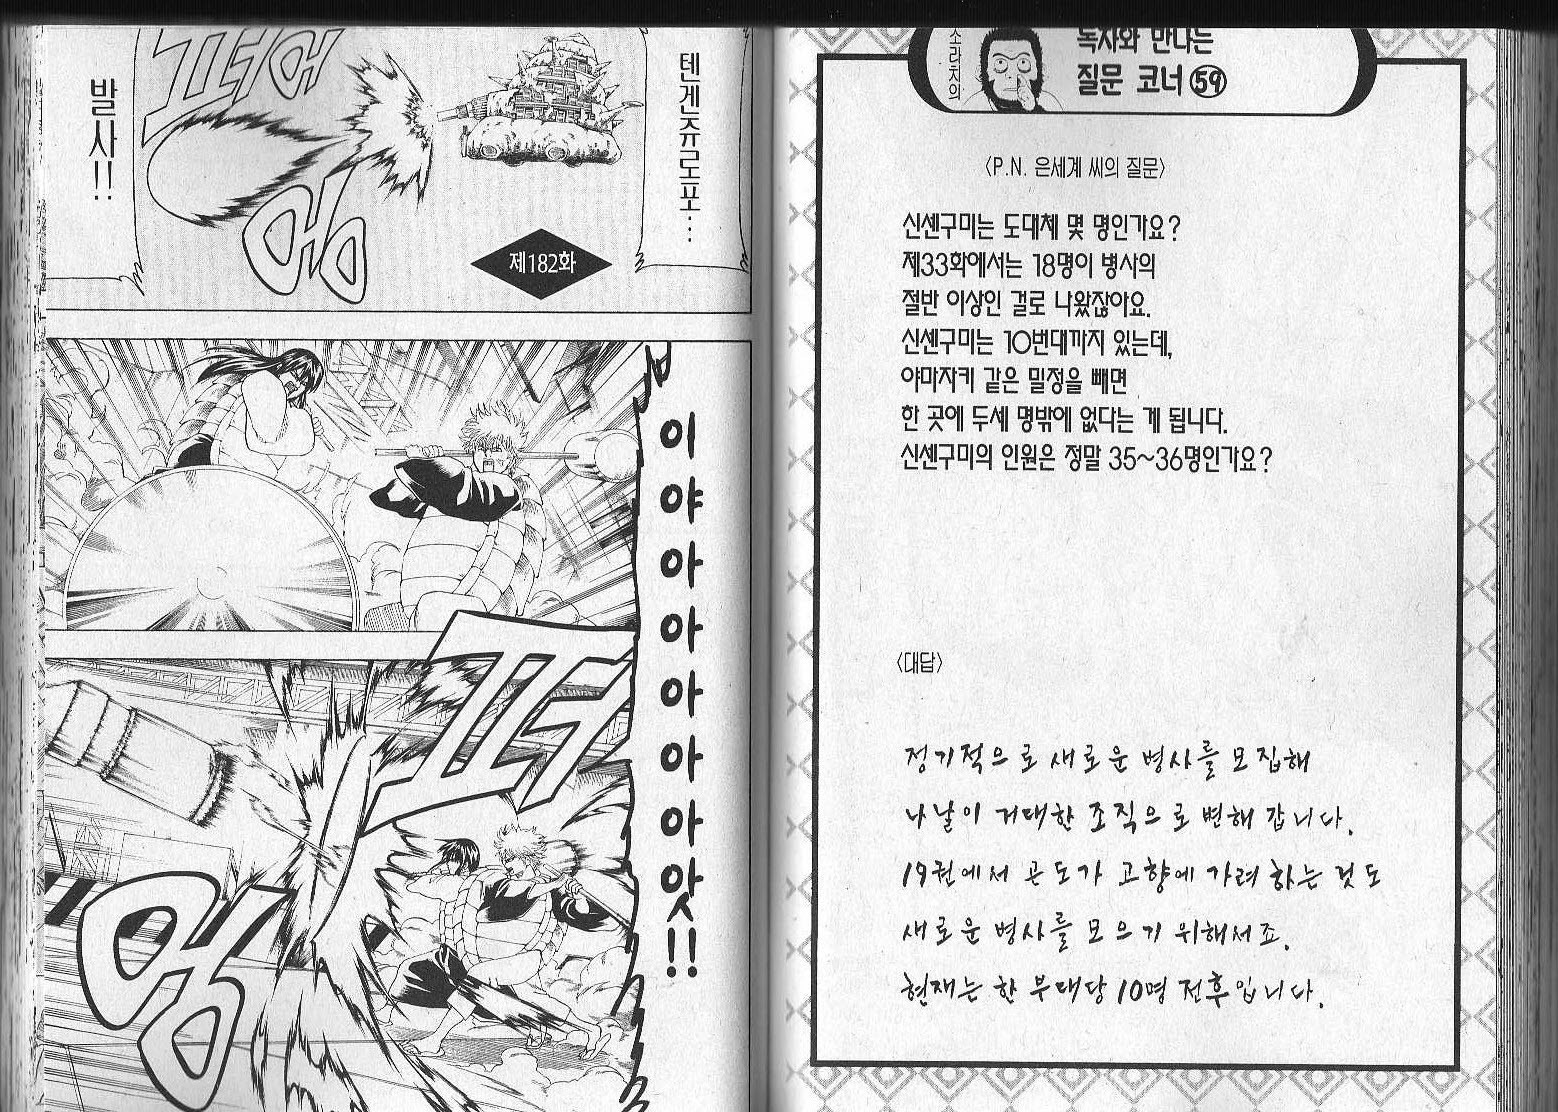 텐겐쥬로포…
발사!!
퍼어
엉
제182화
이야아아아아아앗!!
퍼
엉
소라치의
독자와 만나는
질문 코너 59
〈P.N. 은세계 씨의 질문〉
신센구미는 도대체 몇 명인가요?
제33화에서는 18명이 병사의
절반 이상인 걸로 나왔잖아요.
신센구미는 10번대까지 있는데,
야마자키 같은 밀정을 빼면
한 곳에 두세 명밖에 없다는 게 됩니다.
신센구미의 인원은 정말 35~36명인가요?
〈대답〉
정기적으로 새로운 병사를 모집해
나날이 거대한 조직으로 변해 갑니다.
19권에서 곤도가 고향에 가려 하는 것도
새로운 병사를 모으기 위해서죠.
현재는 한 부대당 10명 전후입니다.